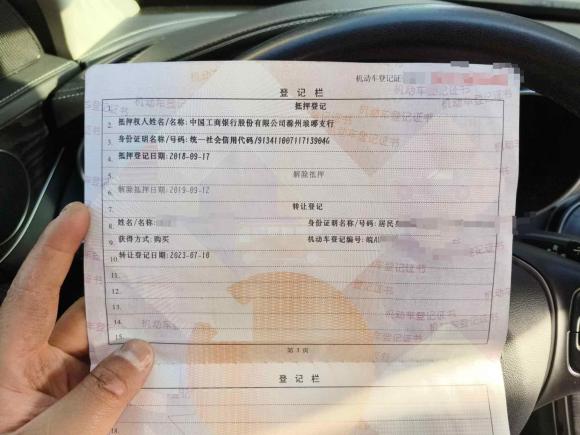 机动车登记证
登记栏
1. 抵押登记
2. 抵押权人姓名/名称: 中国工商银行股份有限公司滁州琅琊支行
3. 身份证明名称/号码: 统一社会信用代码/91341100711713904G
4. 抵押登记日期: 2018-09-17
5. 解除抵押
6. 解除抵押日期: 2019-09-12
7. 转让登记
8. 姓名/名称: 身份证明名称/号码: 居民
9. 获得方式: 购买 机动车登记编号: 皖
10. 转让登记日期: 2023-07-10
11.
12.
13.
14.
15.
第 3 页
登记栏